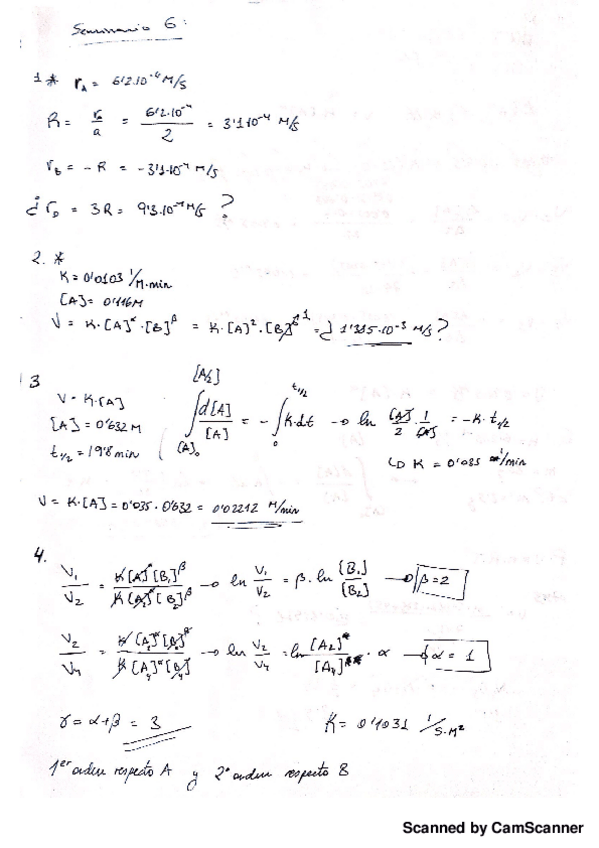 Seminario 6:
1 * r_A = 6'2.10^-4 M/s
R = r_a/a = 6'2.10^-4/2 = 3'1.10^-4 M/s
r_b = - R = -3'1.10^-4 M/s
¿ r_D = 3R = 9'3.10^-4 M/s ?
2. *
K = 0'0103 1/M.min
[A] = 0'416M
V = K.[A]^α.[B]^β = K.[A]^2.[B]^0 = ¿ 1'315.10^-3 M/s ?
3
V = K.[A]
[A] = 0'632 M
t_1/2 = 19'8 min
∫ d[A]/[A] = - ∫ K.dt → ln [A]/2 . 1/[A] = -K. t_1/2
↳ K = 0'035 1/min
V = K.[A] = 0'035 . 0'632 = 0'02212 M/min
4.
V_1/V_2 = K[A]^α[B_1]^β / K[A]^α[B_2]^β → ln V_1/V_2 = β. ln [B_1]/[B_2] → β = 2
V_2/V_4 = K[A_2]^α[B]^β / K[A_4]^α[B]^β → ln V_2/V_4 = ln [A_2]/[A_4] . α → α = 1
γ = α+β = 3 K = 0'1031 1/s.M^2
1er orden respecto A y 2º orden respecto B
Scanned by CamScanner